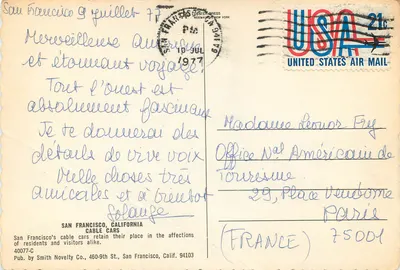 San Francisco 9 juillet 77
Merveilleuse Amérique
et étonnant voyage!
Tout l'Ouest est
absolument fascinant
Je te donnerai des
détails de vive voix
Mille choses très
amicales et à bientôt
Solange
SAN FRANCISCO, CALIFORNIA
CABLE CARS
San Francisco's cable cars retain their place in the affections
of residents and visitors alike.
40077-C
Pub. by Smith Novelty Co., 460-9th St., San Francisco, Calif. 94103
SAN FRANCISCO
PM
10 JUL
1977
USA 21c
UNITED STATES AIR MAIL
Madame Fry
Office Nal Américain de
Touresme
29, Place Vendome
Paris
(FRANCE) 75001